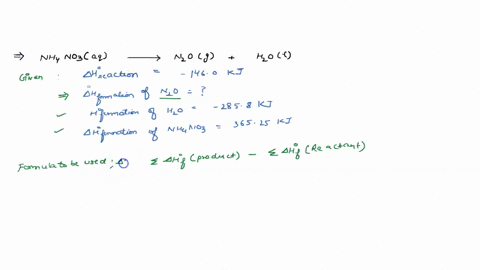 ⇒ NH4 NO3(aq) ⟶ N2O(g) + H2O(l)
Given : ΔH°reaction = -146.0 KJ
⇒ ΔH°formation of N2O = ?
✓ H°formation of H2O = -285.8 KJ
✓ ΔH°formation of NH4NO3 = 365.25 KJ
Formula to be used : Δ Σ ΔH°f (product) - Σ ΔH°f (Reactant)